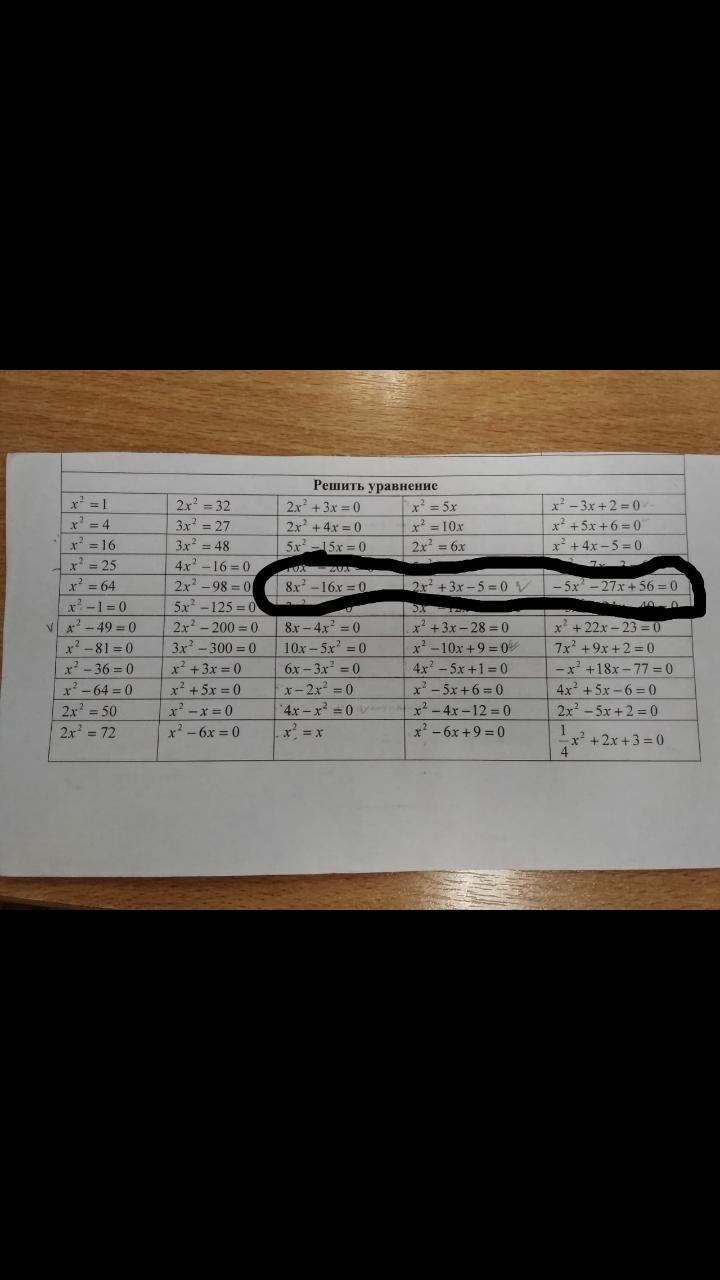 Решить уравнение
x² = 1 2x² = 32 2x² + 3x = 0 x² = 5x x² − 3x + 2 = 0
x² = 4 3x² = 27 2x² + 4x = 0 x² = 10x x² + 5x + 6 = 0
x² = 16 3x² = 48 5x² − 15x = 0 2x² = 6x x² + 4x − 5 = 0
x² = 25 4x² − 16 = 0
x² = 64 2x² − 98 = 0 8x² − 16x = 0 2x² + 3x − 5 = 0 −5x² − 27x + 56 = 0
x² − 1 = 0 5x² − 125 = 0
x² − 49 = 0 2x² − 200 = 0 8x − 4x² = 0 x² + 3x − 28 = 0 x² + 22x − 23 = 0
x² − 81 = 0 3x² − 300 = 0 10x − 5x² = 0 x² − 10x + 9 = 0 7x² + 9x + 2 = 0
x² − 36 = 0 x² + 3x = 0 6x − 3x² = 0 4x² − 5x + 1 = 0 −x² + 18x − 77 = 0
x² − 64 = 0 x² + 5x = 0 x − 2x² = 0 x² − 5x + 6 = 0 4x² + 5x − 6 = 0
2x² = 50 x² − x = 0 4x − x² = 0 x² − 4x − 12 = 0 2x² − 5x + 2 = 0
2x² = 72 x² − 6x = 0 x² = x x² − 6x + 9 = 0 1/4 x² + 2x + 3 = 0